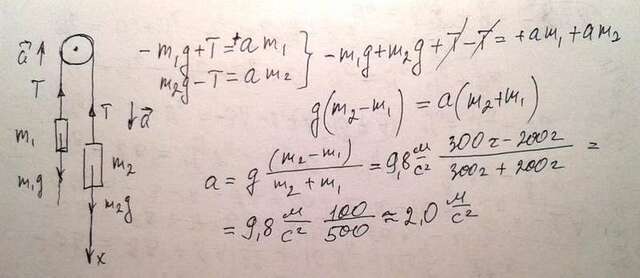 a⃗
T
T
a⃗
m₁
m₂
m₁g
m₂g
x
-m₁g+T=+am₁
m₂g-T=am₂
-m₁g+m₂g+T-T=+am₁+am₂
g(m₂-m₁)=a(m₂+m₁)
a=g (m₂-m₁)/(m₂+m₁) = 9,8 м/с² (300г-200г)/(300г+200г) =
=9,8 м/с² 100/500 ≈ 2,0 м/с²